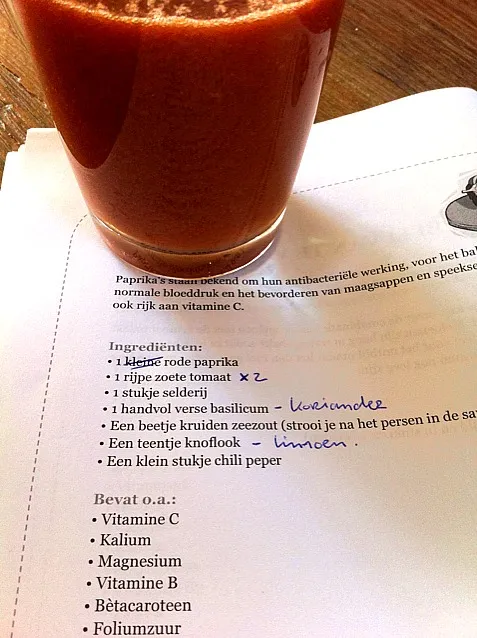 Paprika's staan bekend om hun antibacteriële werking, voor het
normale bloeddruk en het bevorderen van maagsappen en
ook rijk aan vitamine C.
Ingrediënten:
• 1 kleine rode paprika
• 1 rijpe zoete tomaat x2
• 1 stukje selderij
• 1 handvol verse basilicum - koriander
• Een beetje kruiden zeezout (strooi je na het persen in de
• Een teentje knoflook - limoen.
• Een klein stukje chili peper
Bevat o.a.:
• Vitamine C
• Kalium
• Magnesium
• Vitamine B
• Bètacaroteen
• Foliumzuur